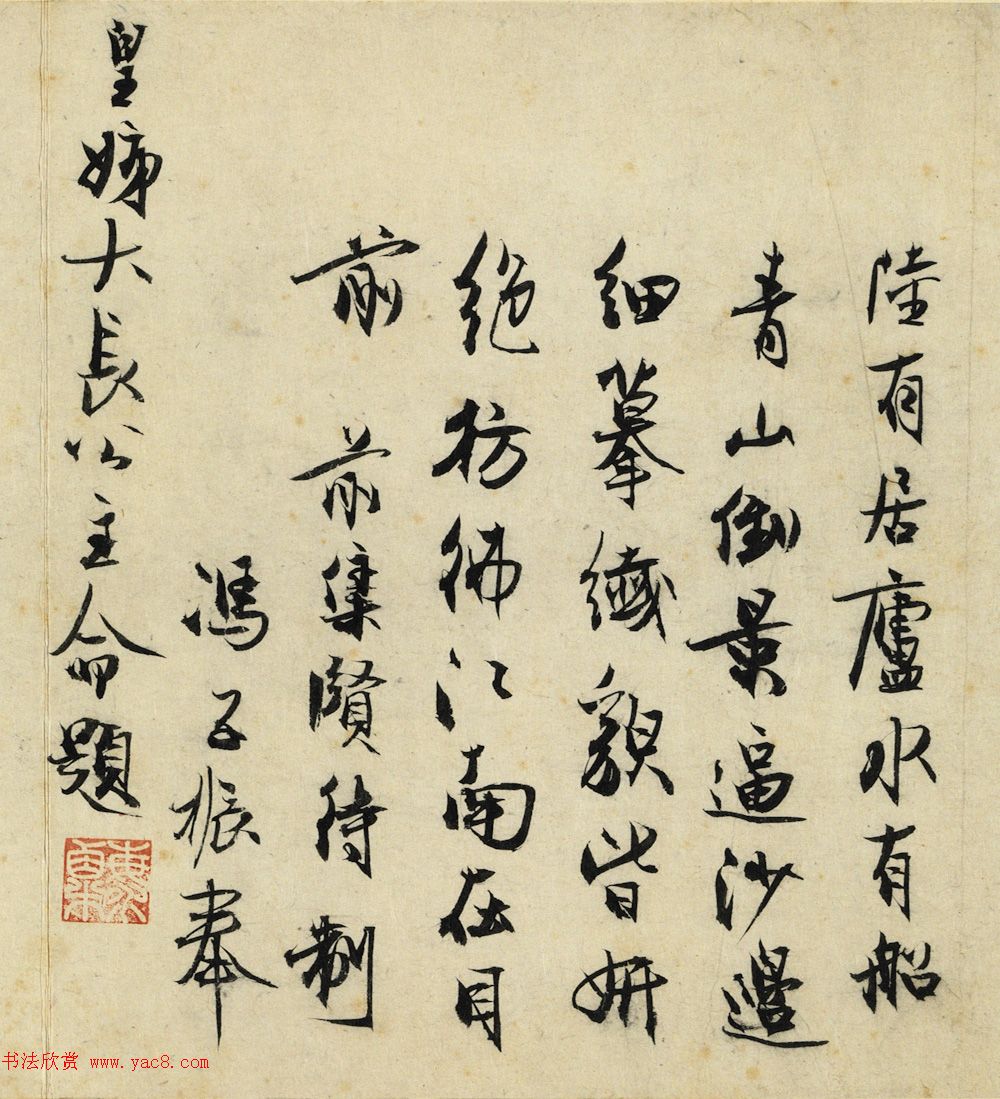 陸有居廬水有船
青山倒景逼沙邊
細摹纎貌皆妍
絶彷彿江南在目
前　前集賢待制
馮子振奉
皇姊大長公主命題
书法欣赏 www.yac8.com